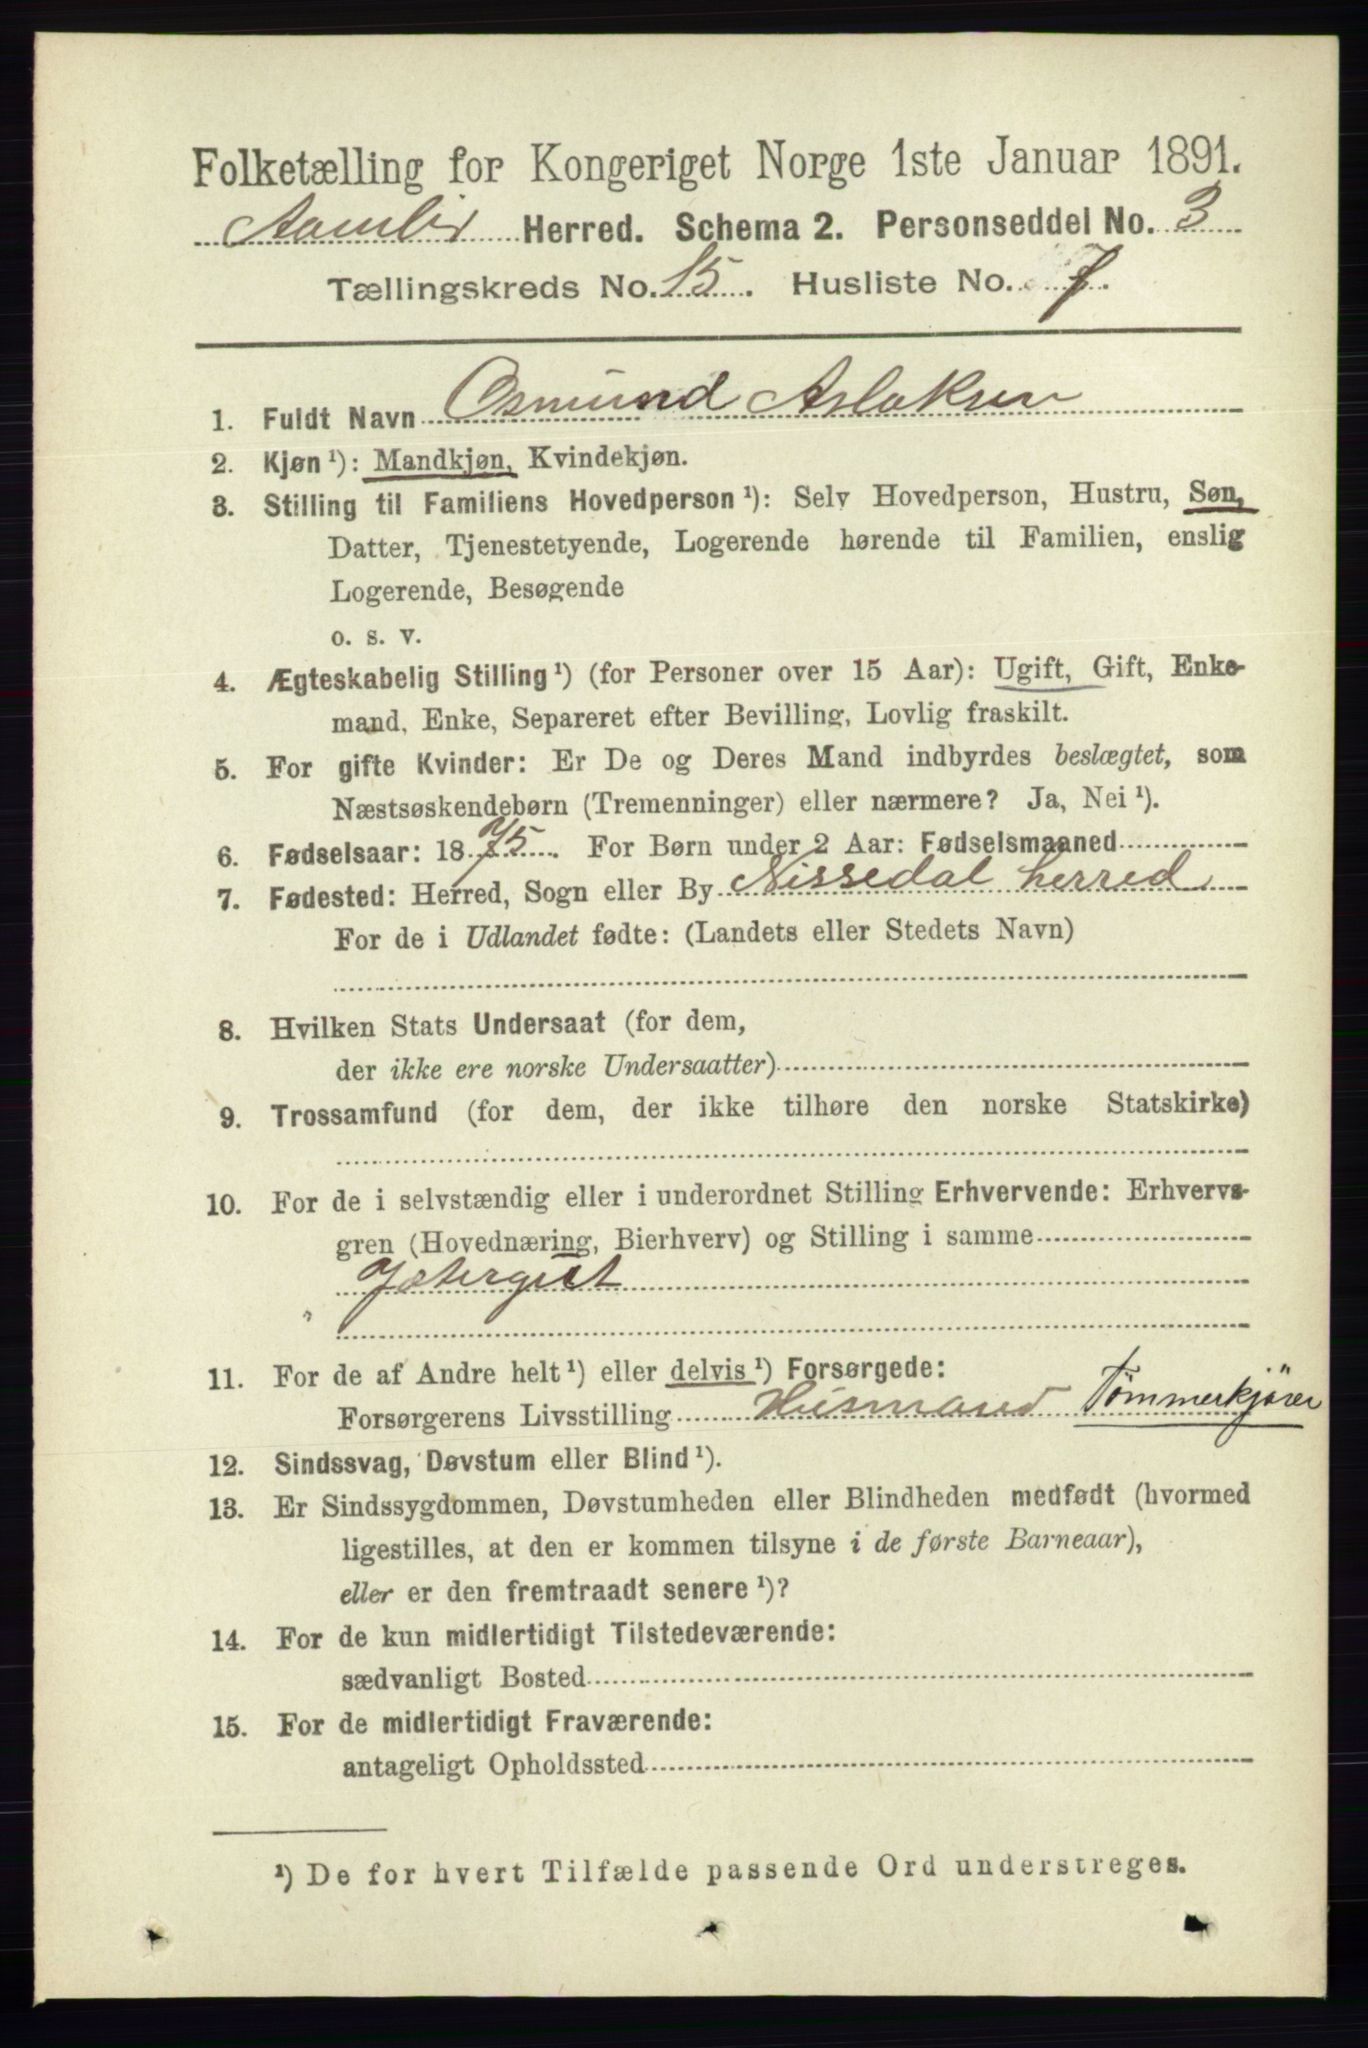 Folketælling for Kongeriget Norge 1ste Januar 1891.
Aamlid Herred. Schema 2. Personseddel No. 3
Tællingskreds No. 15. Husliste No. 7.
1. Fuldt Navn Osmund Aslaksen
2. Kjøn ¹): Mandkjøn, Kvindekjøn.
3. Stilling til Familiens Hovedperson ¹): Selv Hovedperson, Hustru, Søn,
Datter, Tjenestetyende, Logerende hørende til Familien, enslig
Logerende, Besøgende
o. s. v.
4. Ægteskabelig Stilling ¹) (for Personer over 15 Aar): Ugift, Gift, Enke-
mand, Enke, Separeret efter Bevilling, Lovlig fraskilt.
5. For gifte Kvinder: Er De og Deres Mand indbyrdes beslægtet, som
Næstsøskendebørn (Tremenninger) eller nærmere? Ja, Nei ¹).
6. Fødselsaar: 1875. For Børn under 2 Aar: Fødselsmaaned
7. Fødested: Herred, Sogn eller By Nissedal herred
For de i Udlandet fødte: (Landets eller Stedets Navn)
8. Hvilken Stats Undersaat (for dem,
der ikke ere norske Undersaatter)
9. Trossamfund (for dem, der ikke tilhøre den norske Statskirke)
10. For de i selvstændig eller i underordnet Stilling Erhvervende: Erhvervs-
gren (Hovednæring, Bierhverv) og Stilling i samme
Jætergut
11. For de af Andre helt ¹) eller delvis ¹) Forsørgede:
Forsørgerens Livsstilling Husmand Tømmerkjører
12. Sindssvag, Døvstum eller Blind ¹).
13. Er Sindssygdommen, Døvstumheden eller Blindheden medfødt (hvormed
ligestilles, at den er kommen tilsyne i de første Barneaar),
eller er den fremtraadt senere ¹)?
14. For de kun midlertidigt Tilstedeværende:
sædvanligt Bosted
15. For de midlertidigt Fraværende:
antageligt Opholdssted
¹) De for hvert Tilfælde passende Ord understreges.